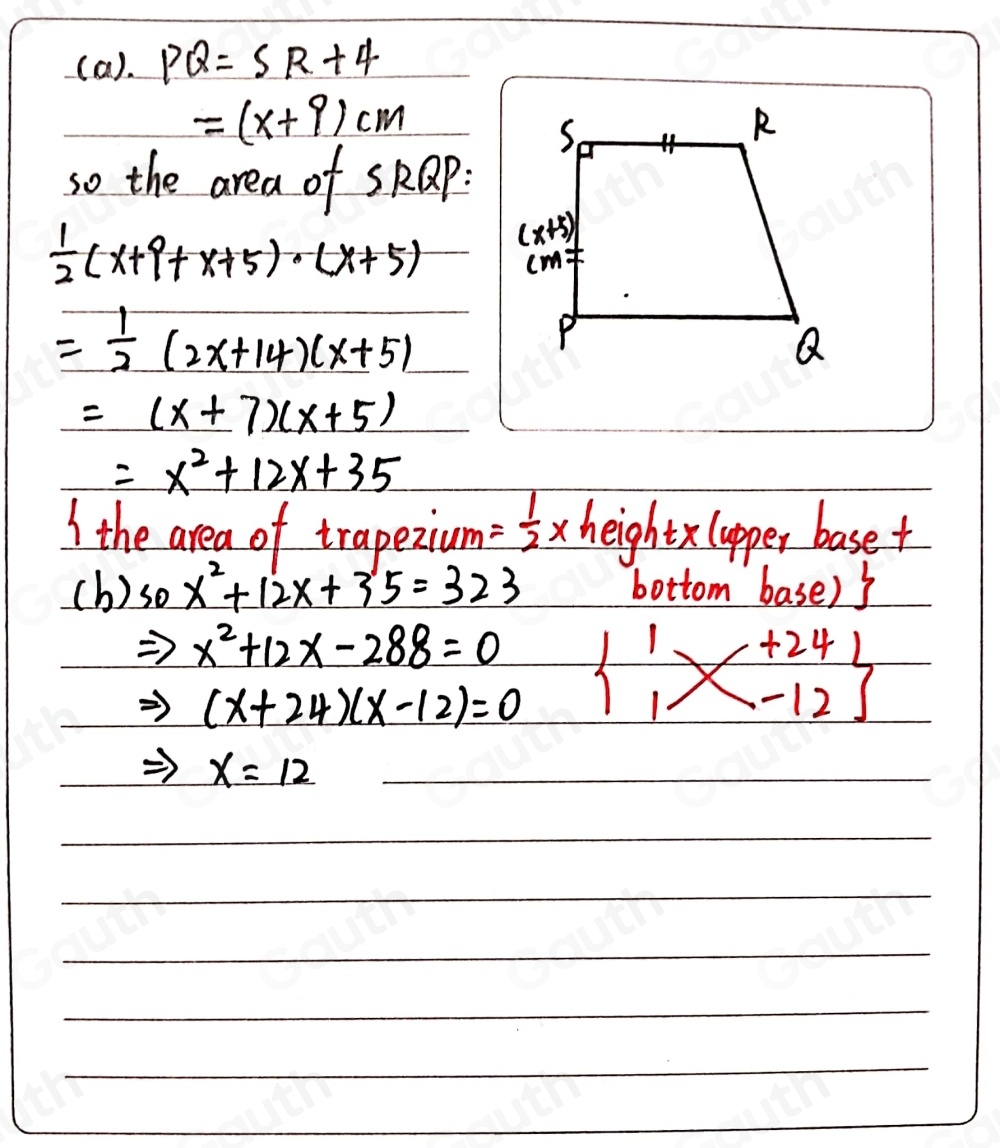 (a). PQ = SR + 4
= (x+9) cm
so the area of SRQP:
1/2 (x+9+x+5)·(x+5)
= 1/2 (2x+14)(x+5)
= (x+7)(x+5)
= x²+12x+35
{ the area of trapezium = 1/2 × height × (upper base +
bottom base) }
(b) so x²+12x+35=323
⇒ x²+12x-288=0
⇒ (x+24)(x-12)=0
⇒ x=12
{ 1 +24
1 -12 }
S R
(x+5)
cm
P Q
Gauth